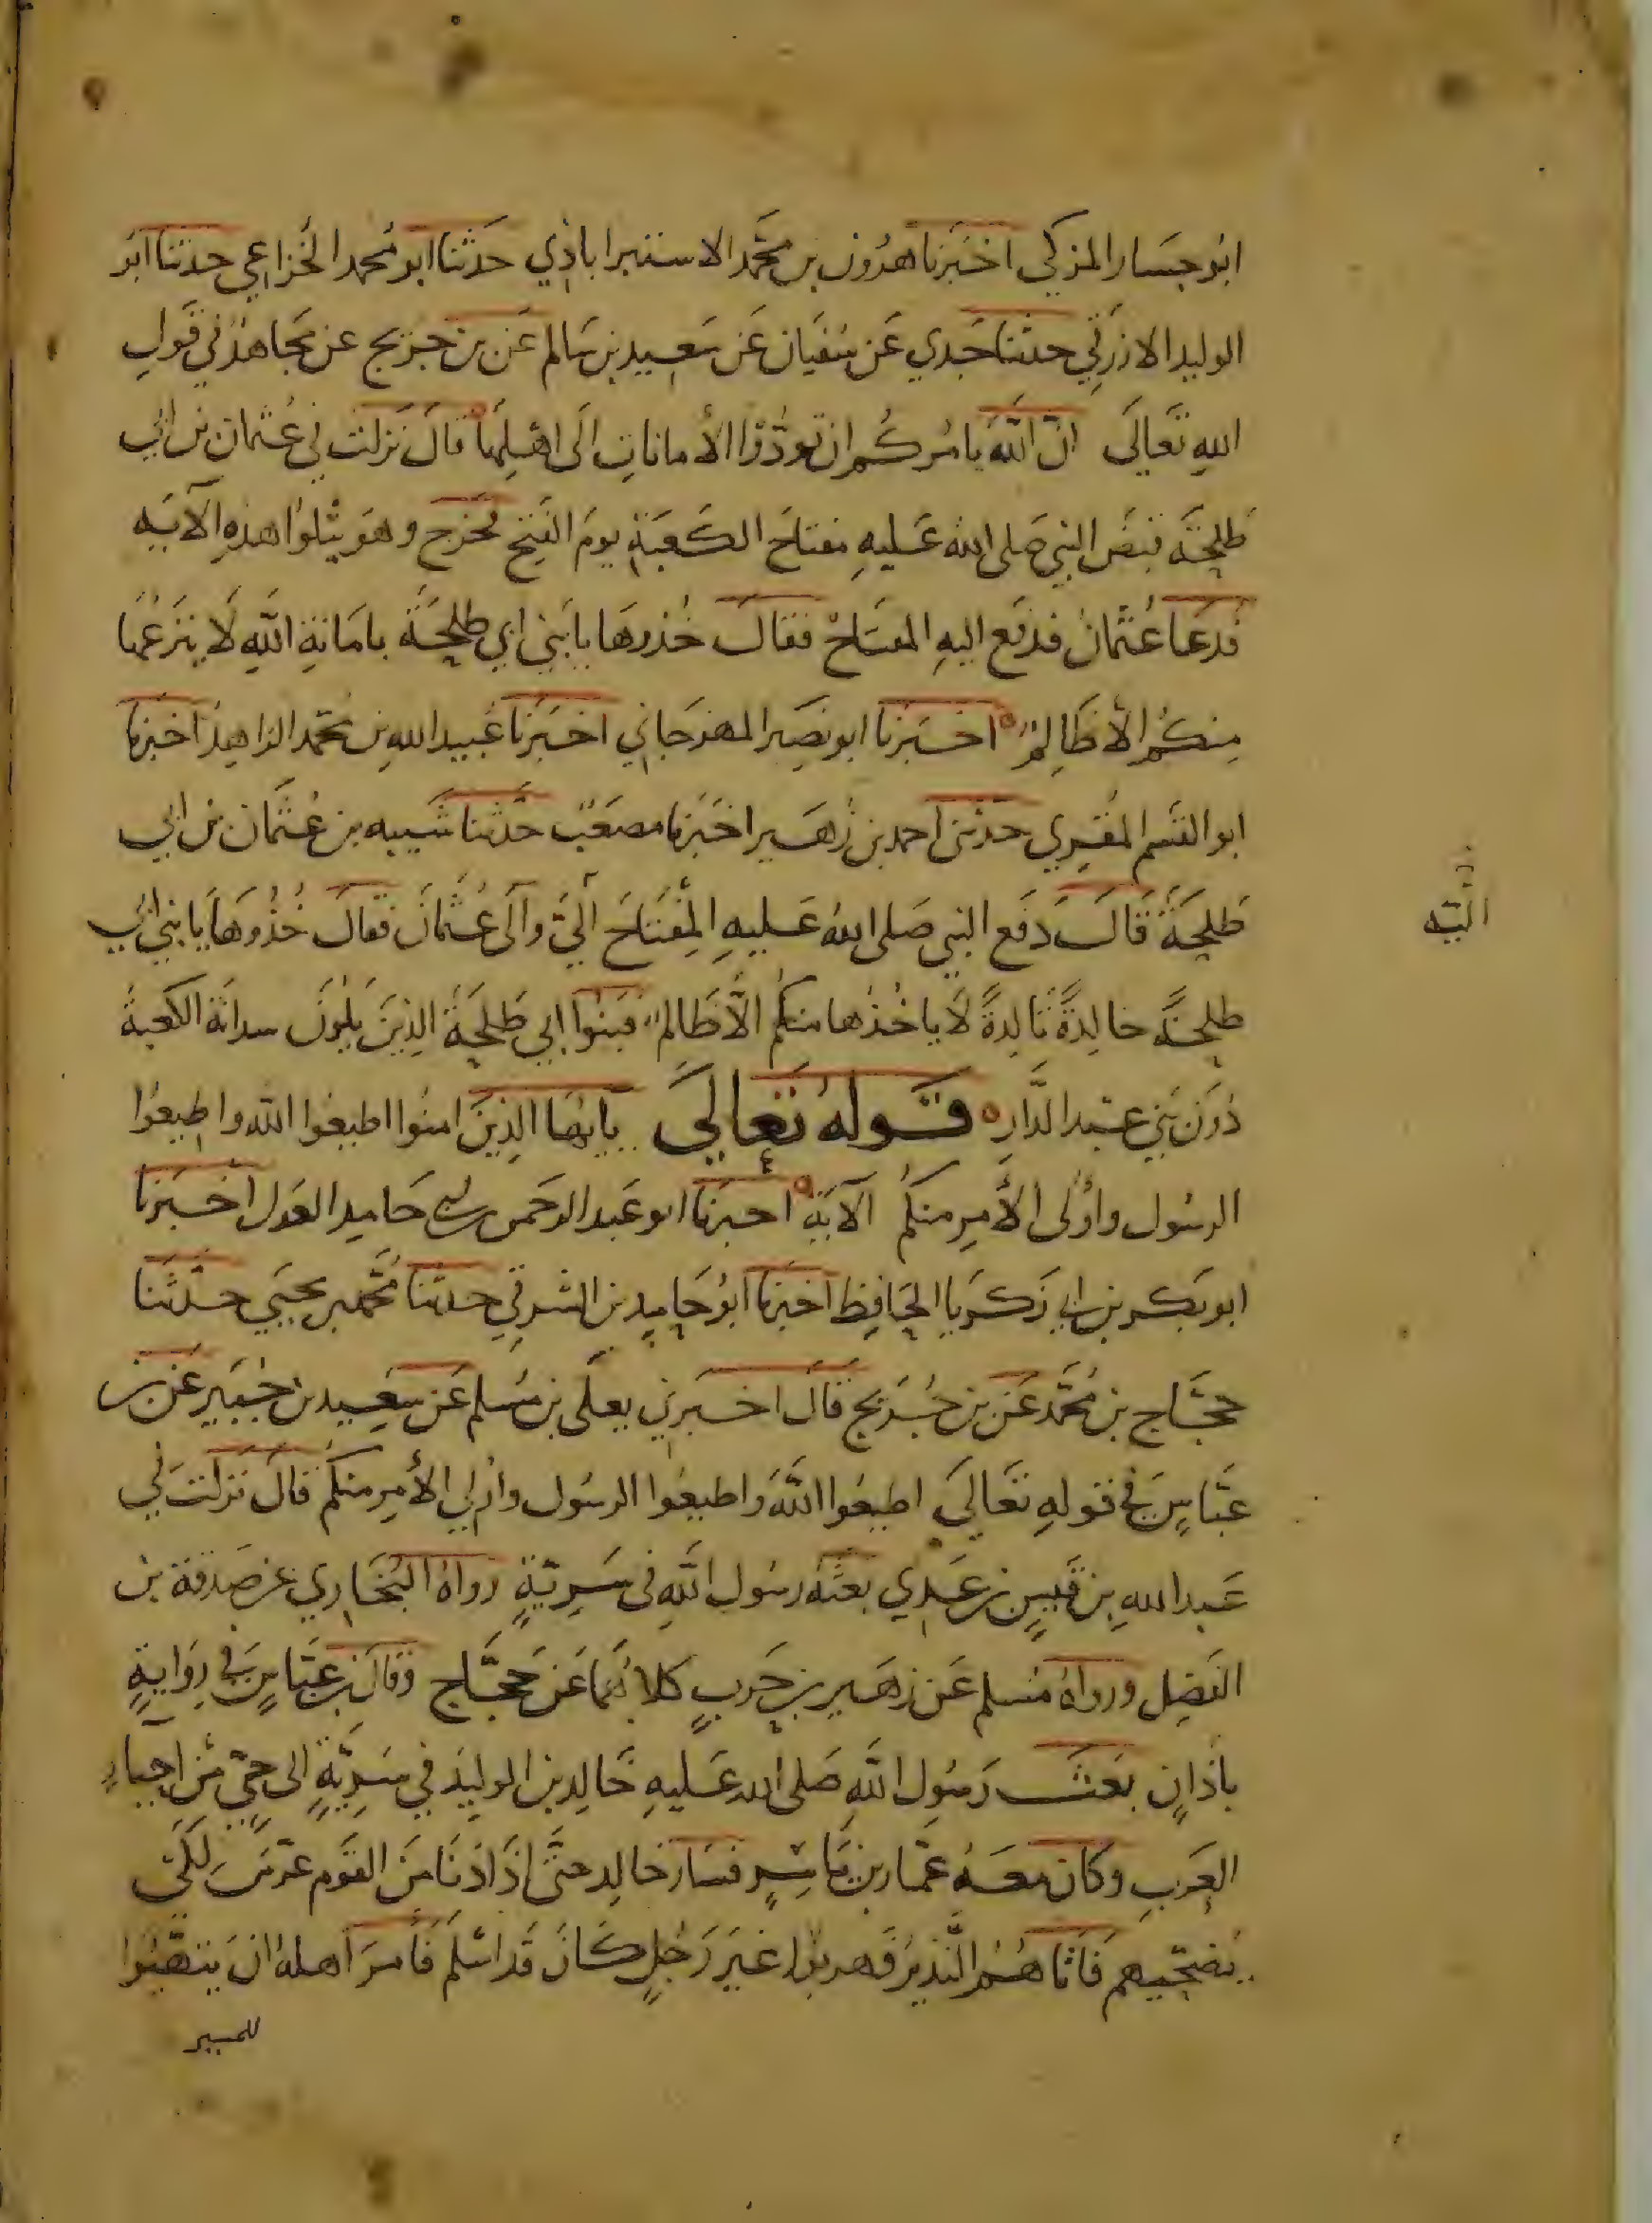 ابو حسار المزكي اخبرنا هرون بن محمد الاستراباذي حدثنا ابو محمد الخزاعي حدثنا ابو
الوليد الازرقي حدثنا جدي عن سفيان عن سعيد بن سالم عن بن جريج عن مجاهد في قول
الله تعالى ان الله يامركم ان تودوا الأمانات الى اهلها قال نزلت في عثمان بن ابي
طلحة قبض النبي صلى الله عليه مفتاح الكعبة يوم الفتح فخرج وهو يتلوا هذه الآيه
فدعا عثمان فدفع اليه المفتاح فقال خذوها يا بني ابي طلحة بامانة الله لا ينزعها
منكم الا ظالم اخبرنا ابو نصر المهرجاني اخبرنا عبيد الله بن محمد الزاهد اخبرنا
ابو القسم المقري حدثني احمد بن زهير اخبرنا مصعب حدثنا شيبه بن عثمان بن ابي
طلحة قال دفع النبي صلى الله عليه المفتاح الي والى عثمان فقال خذوها يا بني ابي
طلحة خالدة تالدة لا ياخذها منكم الا ظالم فبنوا ابي طلحة الذين يلون سدانة الكعبة
دون بني عبد الدار قوله تعالى يايها الذين امنوا اطيعوا الله واطيعوا
الرسول واولى الأمر منكم الآية اخبرنا ابو عبد الرحمن بن ابي حامد العدل اخبرنا
ابو بكر بن ابي زكريا الحافظ اخبرنا ابو حامد بن الشرقي حدثنا محمد بن يحيى حدثنا
حجاج بن محمد عن بن جريج قال اخبرني يعلى بن مسلم عن سعيد بن جبير عن بن
عباس في قوله تعالى اطيعوا الله واطيعوا الرسول واولي الأمر منكم قال نزلت في
عبد الله بن قيس بن عدي بعثه رسول الله في سرية رواه البخاري عن صدقة بن
الفضل ورواه مسلم عن زهير بن حرب كلاهما عن حجاج وقال بن عباس في رواية
باذان بعث رسول الله صلى الله عليه خالد بن الوليد في سرية الى حي من احياء
العرب وكان معه عمار بن ياسر فسار خالد حتى اذا دنا من القوم عرس لكي
يصبحهم فاتاهم النذير فهربوا غير رجل كان قد اسلم فامر اهله ان يتهيوا
للمسير